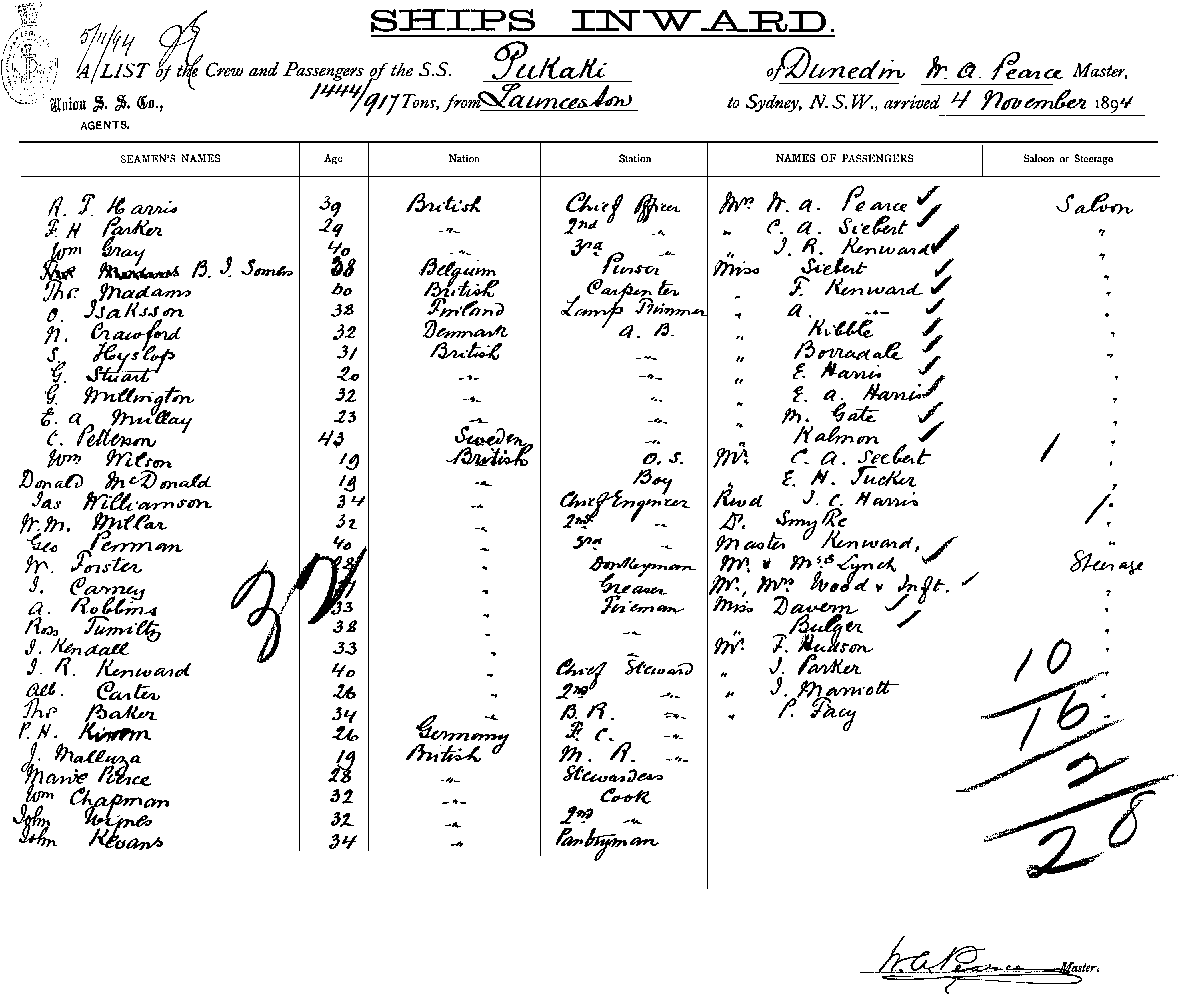 SHIPS INWARD.
5/11/94
A LIST of the Crew and Passengers of the S.S. Pukaki of Dunedin W. A. Pearce Master,
Union S. S. Co., 1444/917 Tons, from Launceston to Sydney, N.S.W., arrived 4 November 1894
AGENTS.
SEAMEN'S NAMES Age Nation Station NAMES OF PASSENGERS Saloon or Steerage
R. T. Harris 39 British Chief Officer Mrs W. A. Pearce ✓ Saloon
F. H Parker 29 -"- 2nd " " C. A. Siebert ✓ "
Wm Gray 40 -"- 3rd " " J. R. Kenward ✓ "
B. J. Somers 38 Belgium Purser Miss Siebert ✓ "
Thos Madams 60 British Carpenter " F. Kenward ✓ "
O. Isaksson 38 Finland Lamp Trimmer " A. -"- ✓ "
N. Crawford 32 Denmark A. B. " Kibble ✓ "
S. Hyslop 31 British -"- " Borradale ✓ "
G. Stuart 20 -"- -"- " E. Harris ✓ "
G. Millington 32 -"- -"- " E. A. Harris ✓ "
E. A Mullay 23 -"- " " M. Gate ✓ "
C. Petterson 43 Sweden " " Kalmon ✓ "
Wm Wilson 19 British O. S. Mr C. A. Seebert "
Donald McDonald 19 " Boy " E. H. Tucker "
Jas Williamson 34 " Chief Engineer Revd J. C. Harris "
W. M. Millar 32 " 2nd " Dr. "
Geo Penman 40 " 3rd " Master Kenward, ✓ "
W. Forster " Donkeyman Mr. & Mrs Lynch ✓ Steerage
J. Carney " Greaser Mr, Mrs Wood & Inft. ✓ "
A. Robbins 33 " Fireman Miss Davern ✓ "
Ross Tumilty 38 " -"- " Bulger ✓ "
J. Kendall 33 " Mr. F. Hudson "
J. R. Kenward 40 " Chief Steward " J. Parker
Alb. Carter 26 " 2nd -"- " J. Marriott
Thos Baker 34 " B. R. -"- " P. Facy "
P. H. 26 Germany F. C. -"-
J. Malluza 19 British M. R. -"-
Marie Pierce 28 -"- Stewardess
Wm Chapman 32 -"- Cook
John Wynes 32 -"- 2nd "
John Kevans 34 -"- Pantryman
32
10
16
2
28
W. A. Pearce Master.